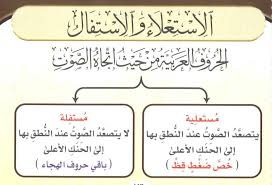 اَلِاسْتِعْلَاءُ وَالِاسْتِفَالُ
اَلْحُرُوفُ الْعَرَبِيَّةُ مِنْ حَيْثُ اتِّجَاهُ الصَّوْتِ
مُستعلية
يتصعَّدُ الصَّوتُ عندَ النُّطقِ بها
إلى الحَنَكِ الأعلىٰ
( خُصَّ ضَغْطٍ قِظْ )
مُستفلة
لا يتصعَّدُ الصَّوتُ عندَ النُّطقِ بها
إلى الحَنَكِ الأعلىٰ
( باقي حروف الهجاء )